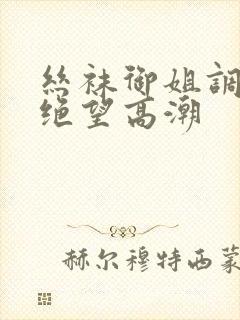 丝袜御姐調
绝望高潮
赫尔穆特西蒙